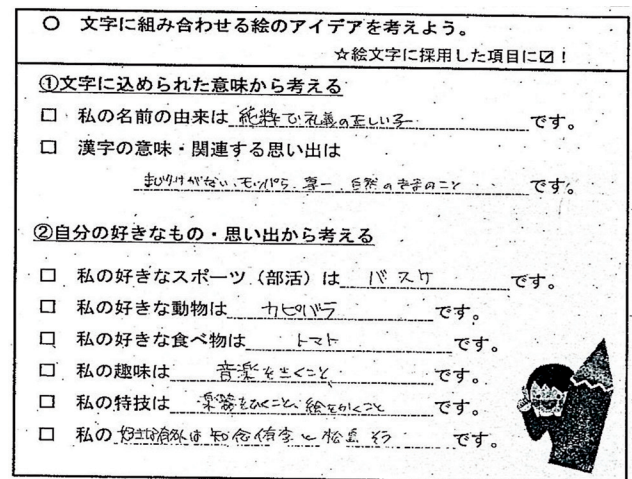 ○ 文字に組み合わせる絵のアイデアを考えよう。
☆絵文字に採用した項目に☑！
①文字に込められた意味から考える
□ 私の名前の由来は 純粋で礼義の正しい子 です。
□ 漢字の意味・関連する思い出は
まじりけがない、もっぱら、専一、自然のままのこと です。
②自分の好きなもの・思い出から考える
□ 私の好きなスポーツ（部活）は バスケ です。
□ 私の好きな動物は カピバラ です。
□ 私の好きな食べ物は トマト です。
□ 私の趣味は 音楽をきくこと です。
□ 私の特技は 楽器をひくこと、絵をかくこと です。
□ 私の 好きな は 知念侑李と です。